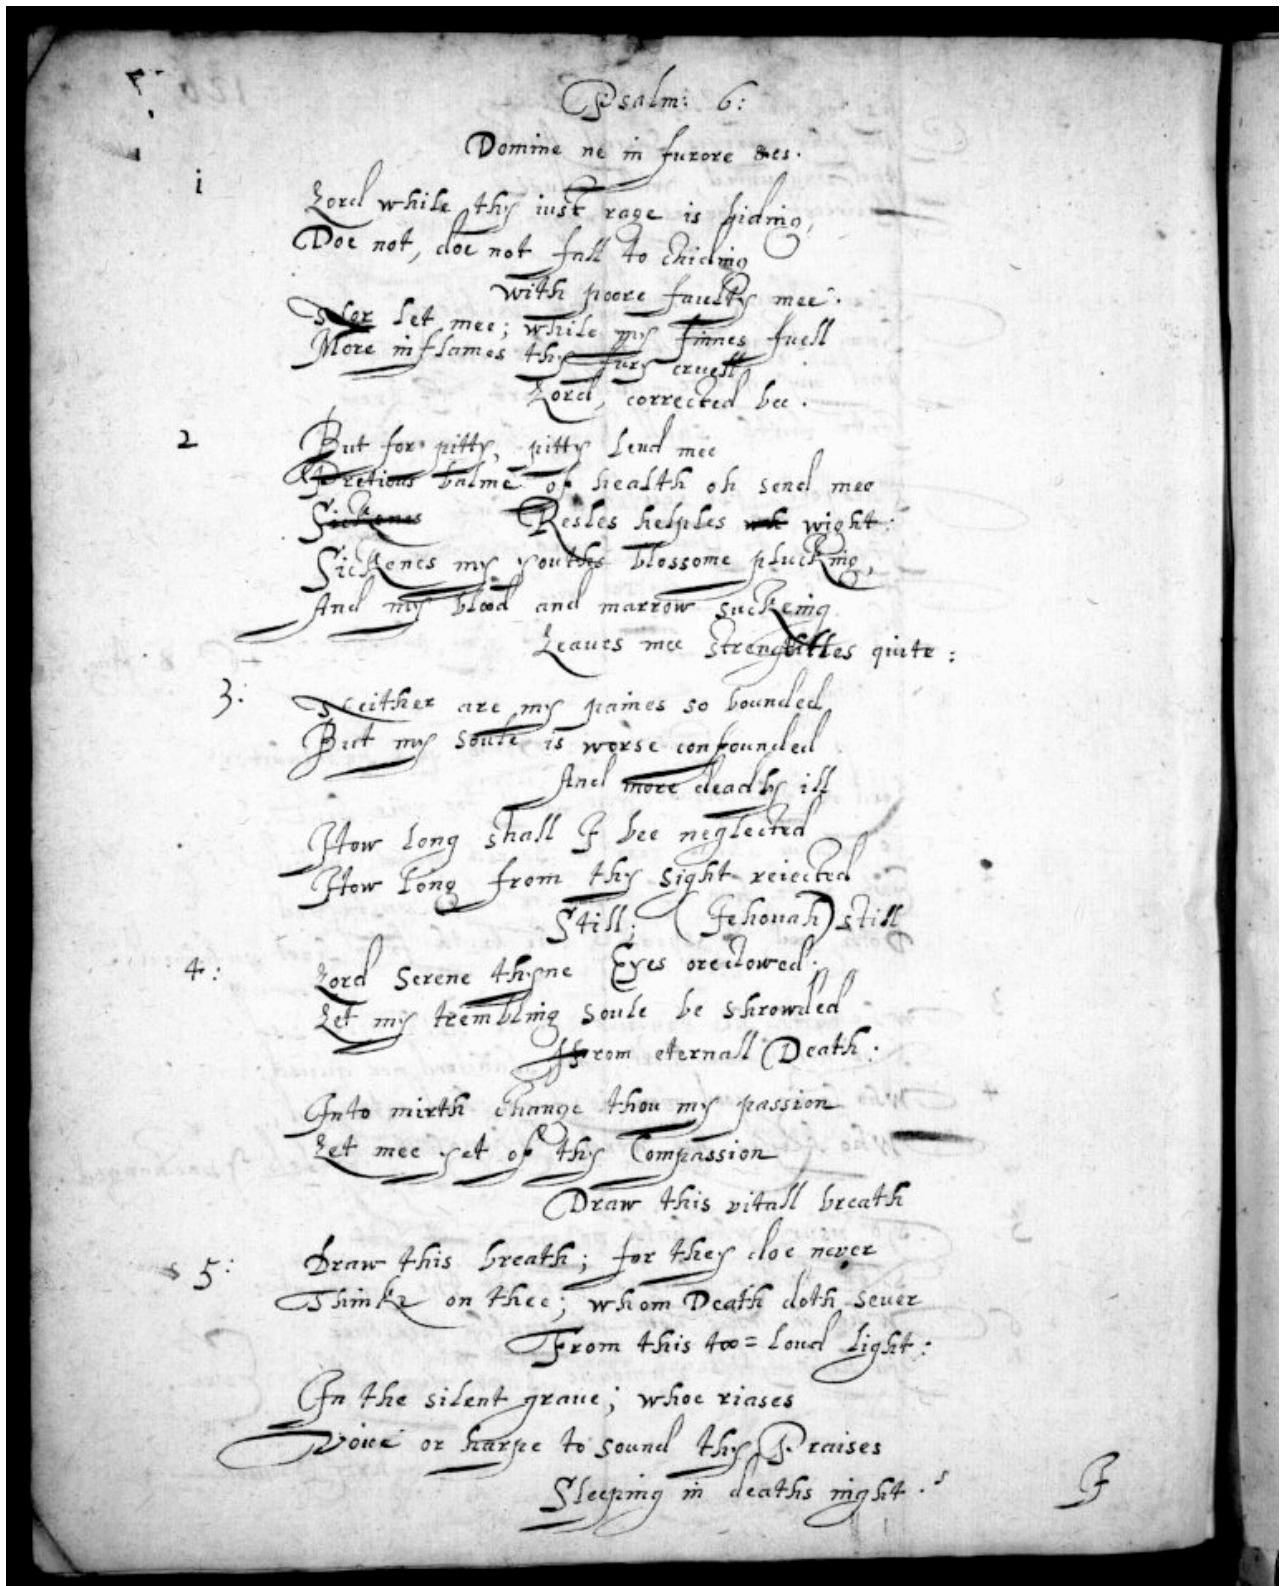 Psalm: 6:
Domine ne in furore &es.
i
Lord while thy iust rage is hiding,
Doe not, doe not fall to chiding
with poore faulty mee.
Nor let mee; while my sinnes fuell
More inflames thy fury cruell
Lord, corrected bee.
2 But for pitty, pitty lend mee
Pretious balme of health oh send mee
Sickenes Resles helples wight:
Sickenes my youths blossome plucking,
And my blood and marrow suckeing
Leaues mee strengthles quite:
3: Neither are my paines so bounded
But my soule is worse confounded
And more deadly ill
How long shall I bee neglected
How long from thy sight reiected
Still; (Jehouah) still
4: Lord serene thyne Eyes orectowed.
Let my trembling soule be shrowded
From eternall Death:
Into mirth change thou my passion
Let mee yet of thy Compassion
Draw this vitall breath
5: Draw this breath; for they doe never
Thinke on thee; whom Death doth seuer
From this too=loud light:
In the silent graue; whoe riases
Voice or harpe to sound thy Praises
Sleeping in deaths night.
I